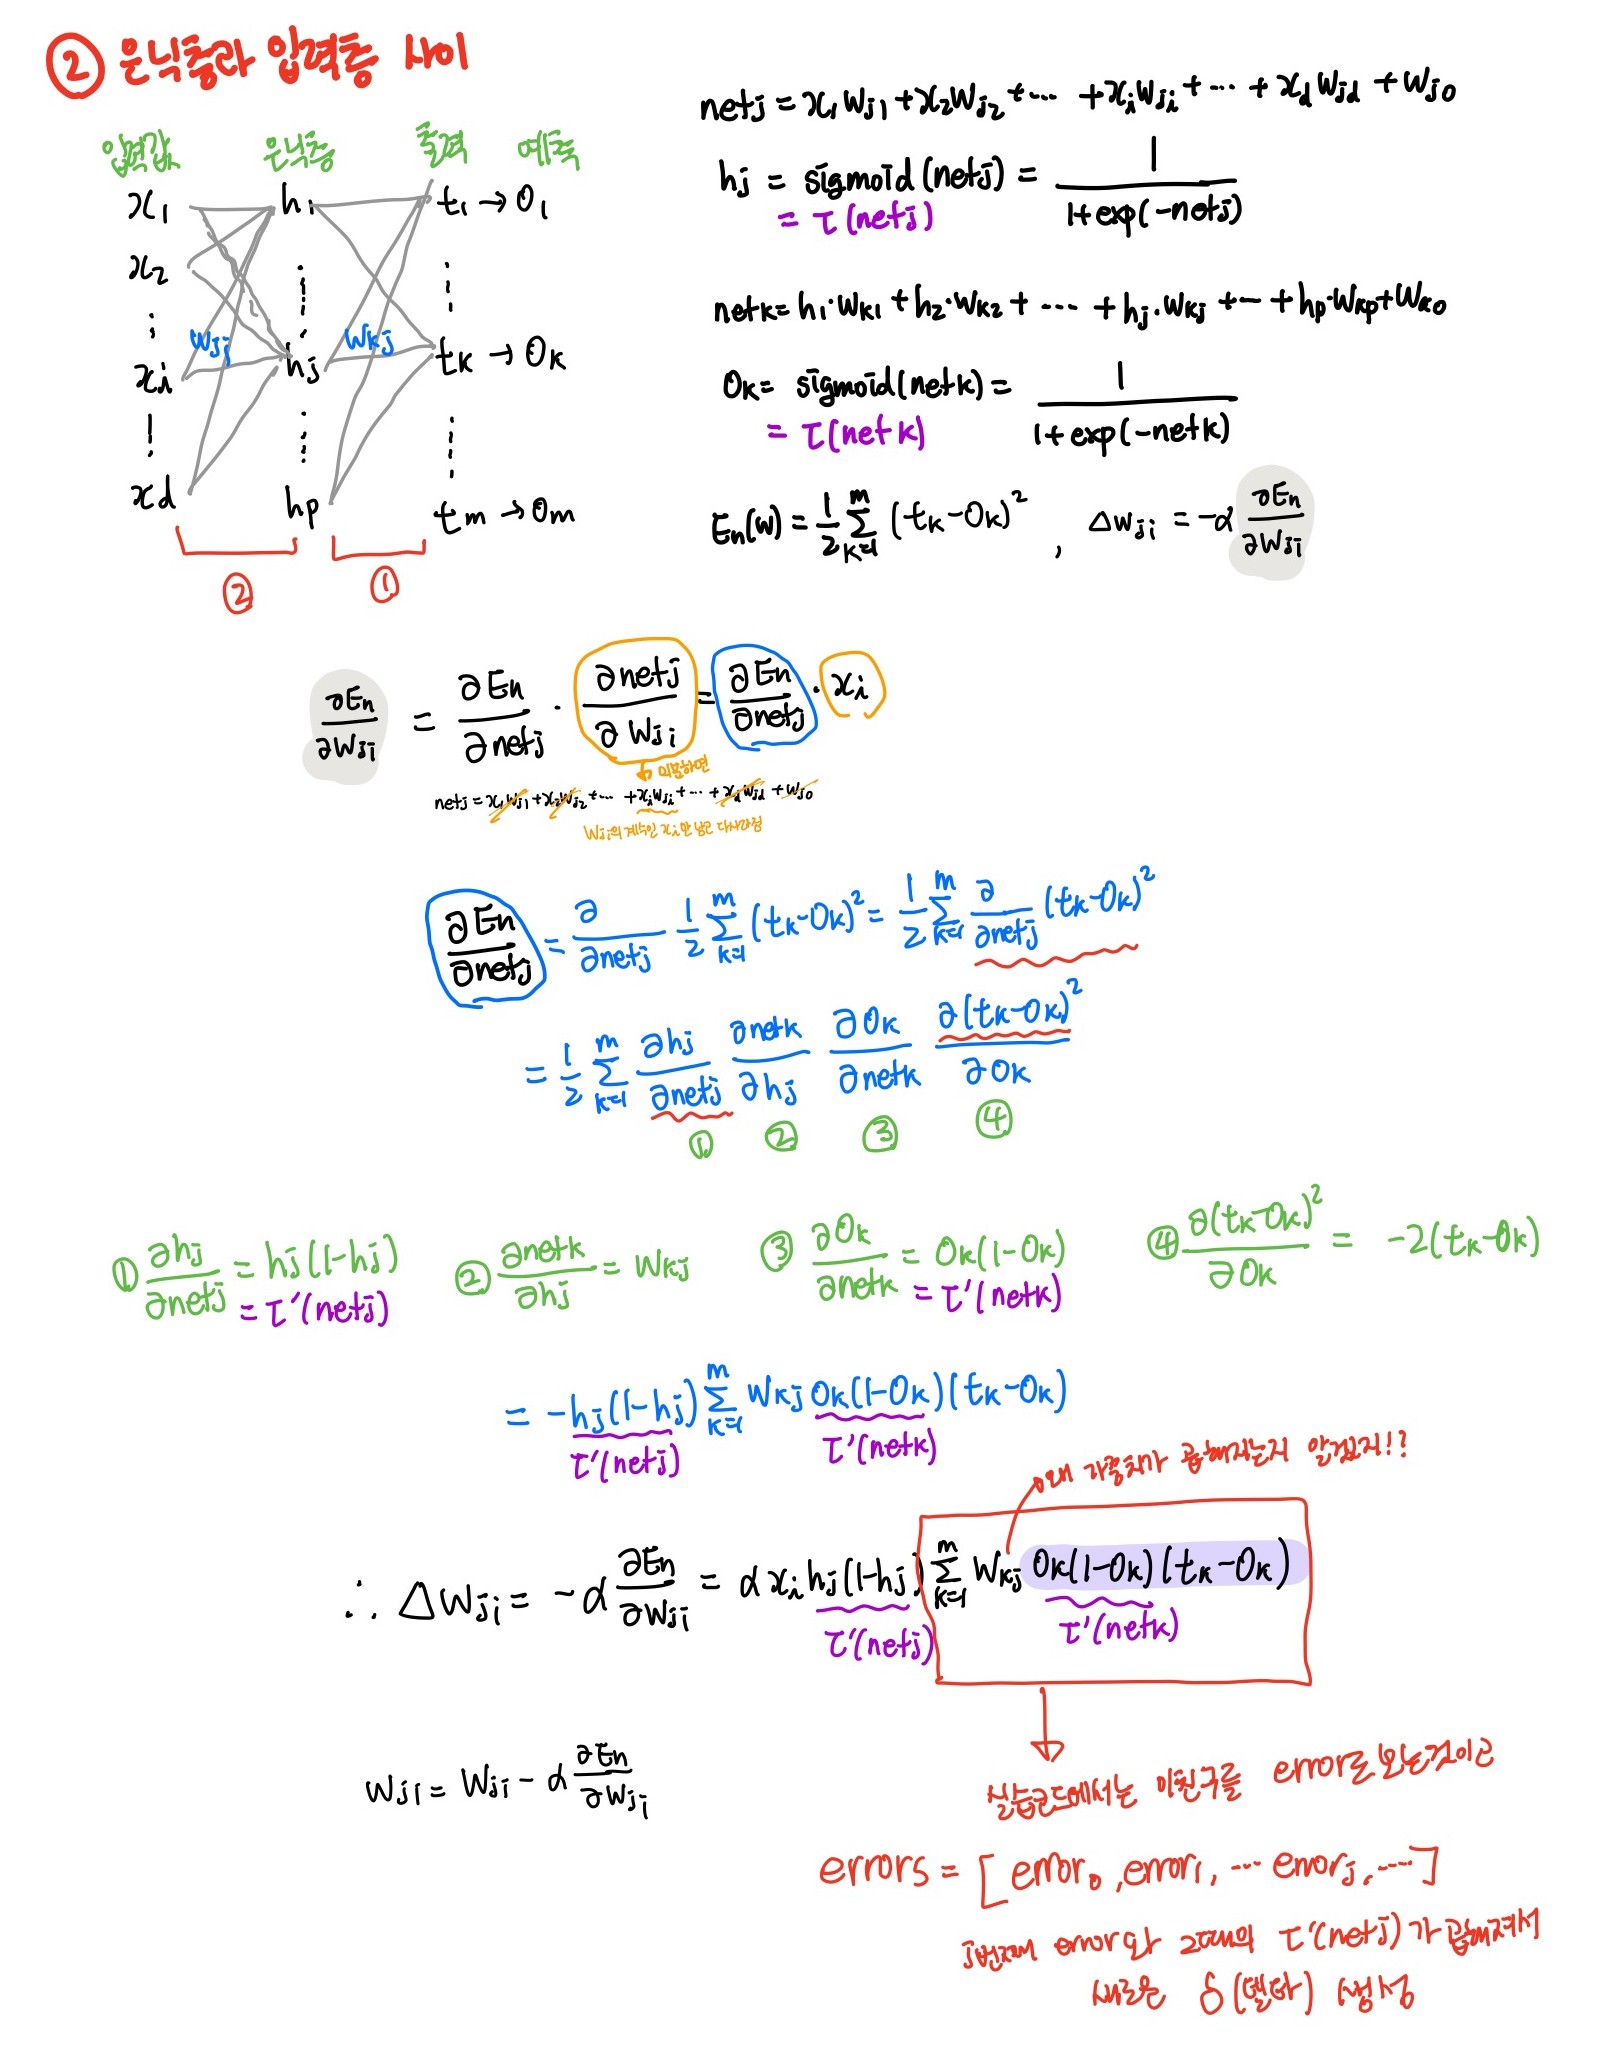 ② 은닉층과 입력층 사이
입력값 은닉층 출력 예측
x₁ h₁ t₁ → O₁
x₂
⋮ ⋮ ⋮
Wji Wkj
xi hj tk → Ok
⋮ ⋮ ⋮
xd hp tm → Om
② ①
netj = x₁Wj₁ + x₂Wj₂ + ⋯ + xiWji + ⋯ + xdWjd + Wj0
hj = sigmoid(netj) = 1/(1+exp(-netj))
= τ(netj)
netk = h₁·Wk₁ + h₂·Wk₂ + ⋯ + hj·Wkj + ⋯ + hp·Wkp + Wk0
Ok = sigmoid(netk) = 1/(1+exp(-netk))
= τ(netk)
En(w) = 1/2 Σ_{k=1}^{m} (tk-Ok)², ΔWji = -α ∂En/∂Wji
∂En/∂Wji = ∂En/∂netj · ∂netj/∂Wji = ∂En/∂netj · xi
미분하면
netj = x₁Wj₁ + x₂Wj₂ + ⋯ + xiWji + ⋯ + xdWjd + Wj0
Wji의 계수인 xi만 남고 다사라짐
∂En/∂netj = ∂/∂netj 1/2 Σ_{k=1}^{m} (tk-Ok)² = 1/2 Σ_{k=1}^{m} ∂/∂netj (tk-Ok)²
= 1/2 Σ_{k=1}^{m} ∂hj/∂netj ∂netk/∂hj ∂Ok/∂netk ∂(tk-Ok)²/∂Ok
① ② ③ ④
① ∂hj/∂netj = hj(1-hj) ② ∂netk/∂hj = Wkj ③ ∂Ok/∂netk = Ok(1-Ok) ④ ∂(tk-Ok)²/∂Ok = -2(tk-Ok)
= τ'(netj) = τ'(netk)
= -hj(1-hj) Σ_{k=1}^{m} Wkj Ok(1-Ok)(tk-Ok)
τ'(netj) τ'(netk)
왜 가중치가 곱해지는지 알겠지!?
∴ ΔWji = -α ∂En/∂Wji = αxihj(1-hj) Σ_{k=1}^{m} Wkj Ok(1-Ok)(tk-Ok)
τ'(netj) τ'(netk)
Wji = Wji - α ∂En/∂Wji
실습코드에서는 이친구를 error로 보는것이고
errors = [error₀, error₁, ⋯ errorj, ⋯]
j번째 error와 그때의 τ'(netj)가 곱해져서
새로운 δ(델타) 생성